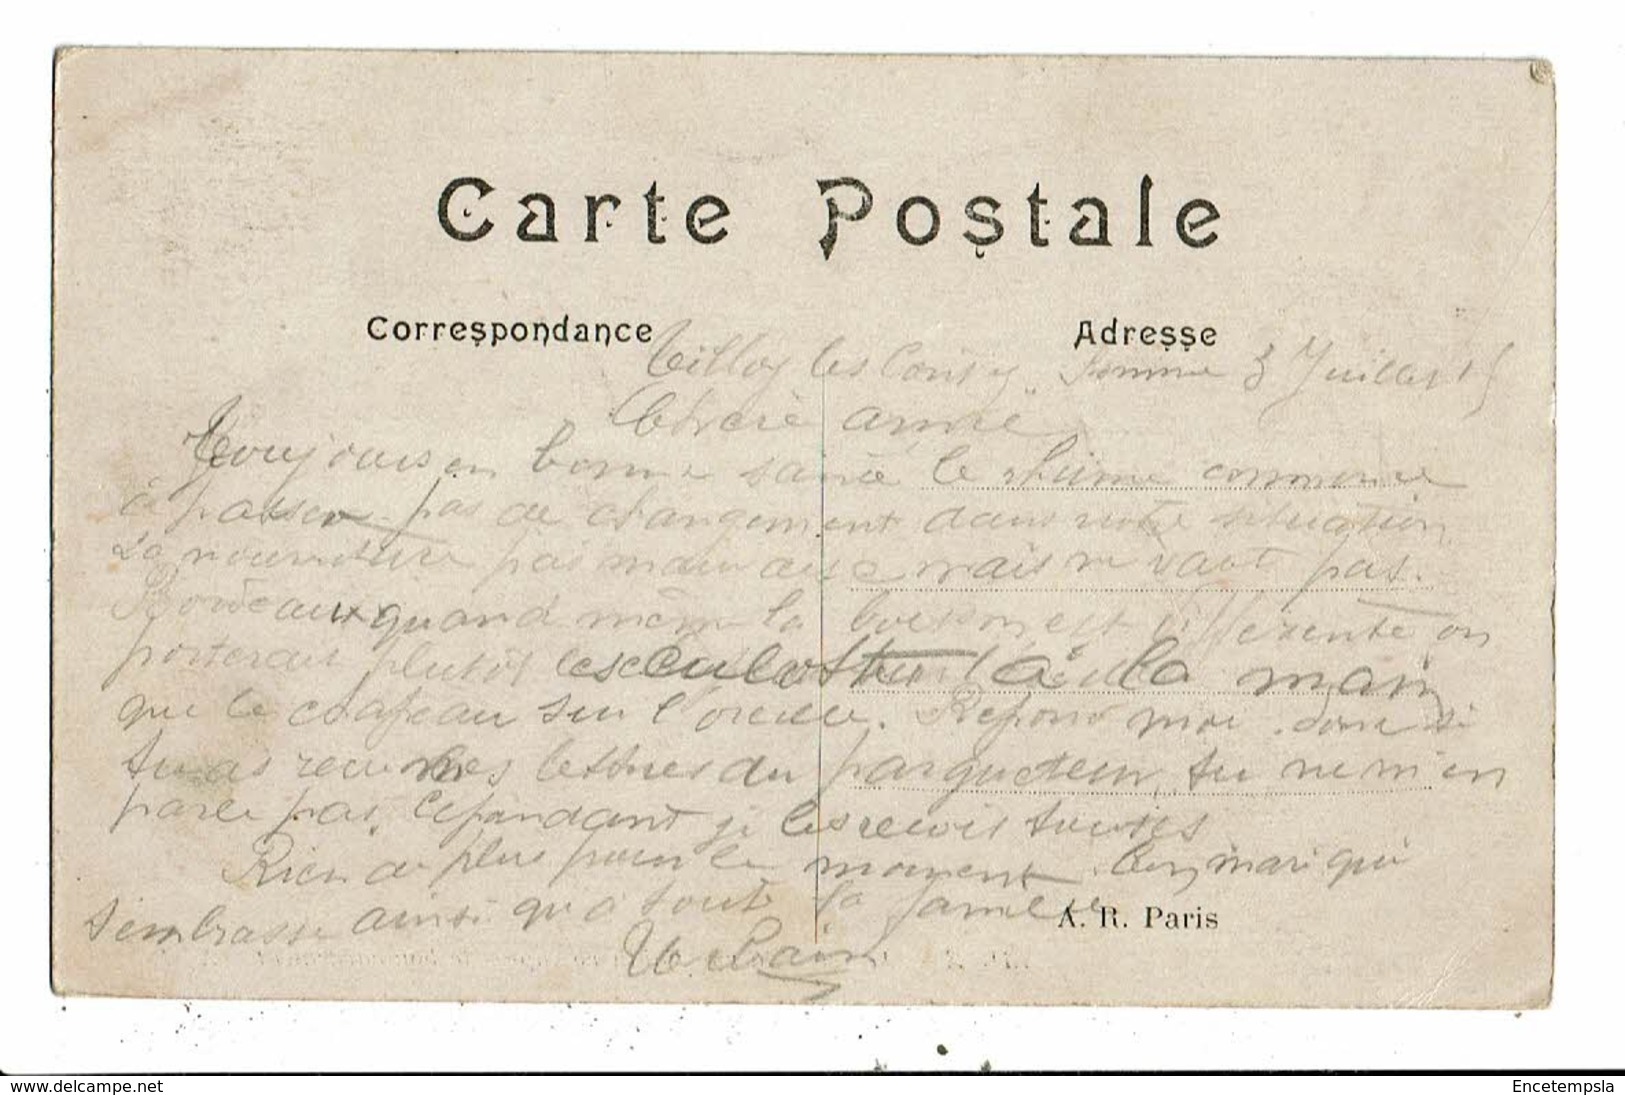 Carte Postale
Correspondance
Adresse
Tilloy les Conty Somme 3 Juillet 15
Chere amie
Toujours en bonne santé le rhume commence
à passer pas de changement dans notre situation
La nourriture pas mauvaise mais ne vaut pas
Bordeaux quand même la boisson est differente on
porterait plutôt les culottes à la main
que le chapeau sur l'oreille. Repond moi donc si
tu as recu les lettres du parqueteur, tu ne m'en
parle pas, cependant je les recois toutes
Rien de plus pour le moment. Ton mari qui
t'embrasse ainsi qu'a toute la famille
Urbain
A. R. Paris
www.delcampe.net
Encetempsla